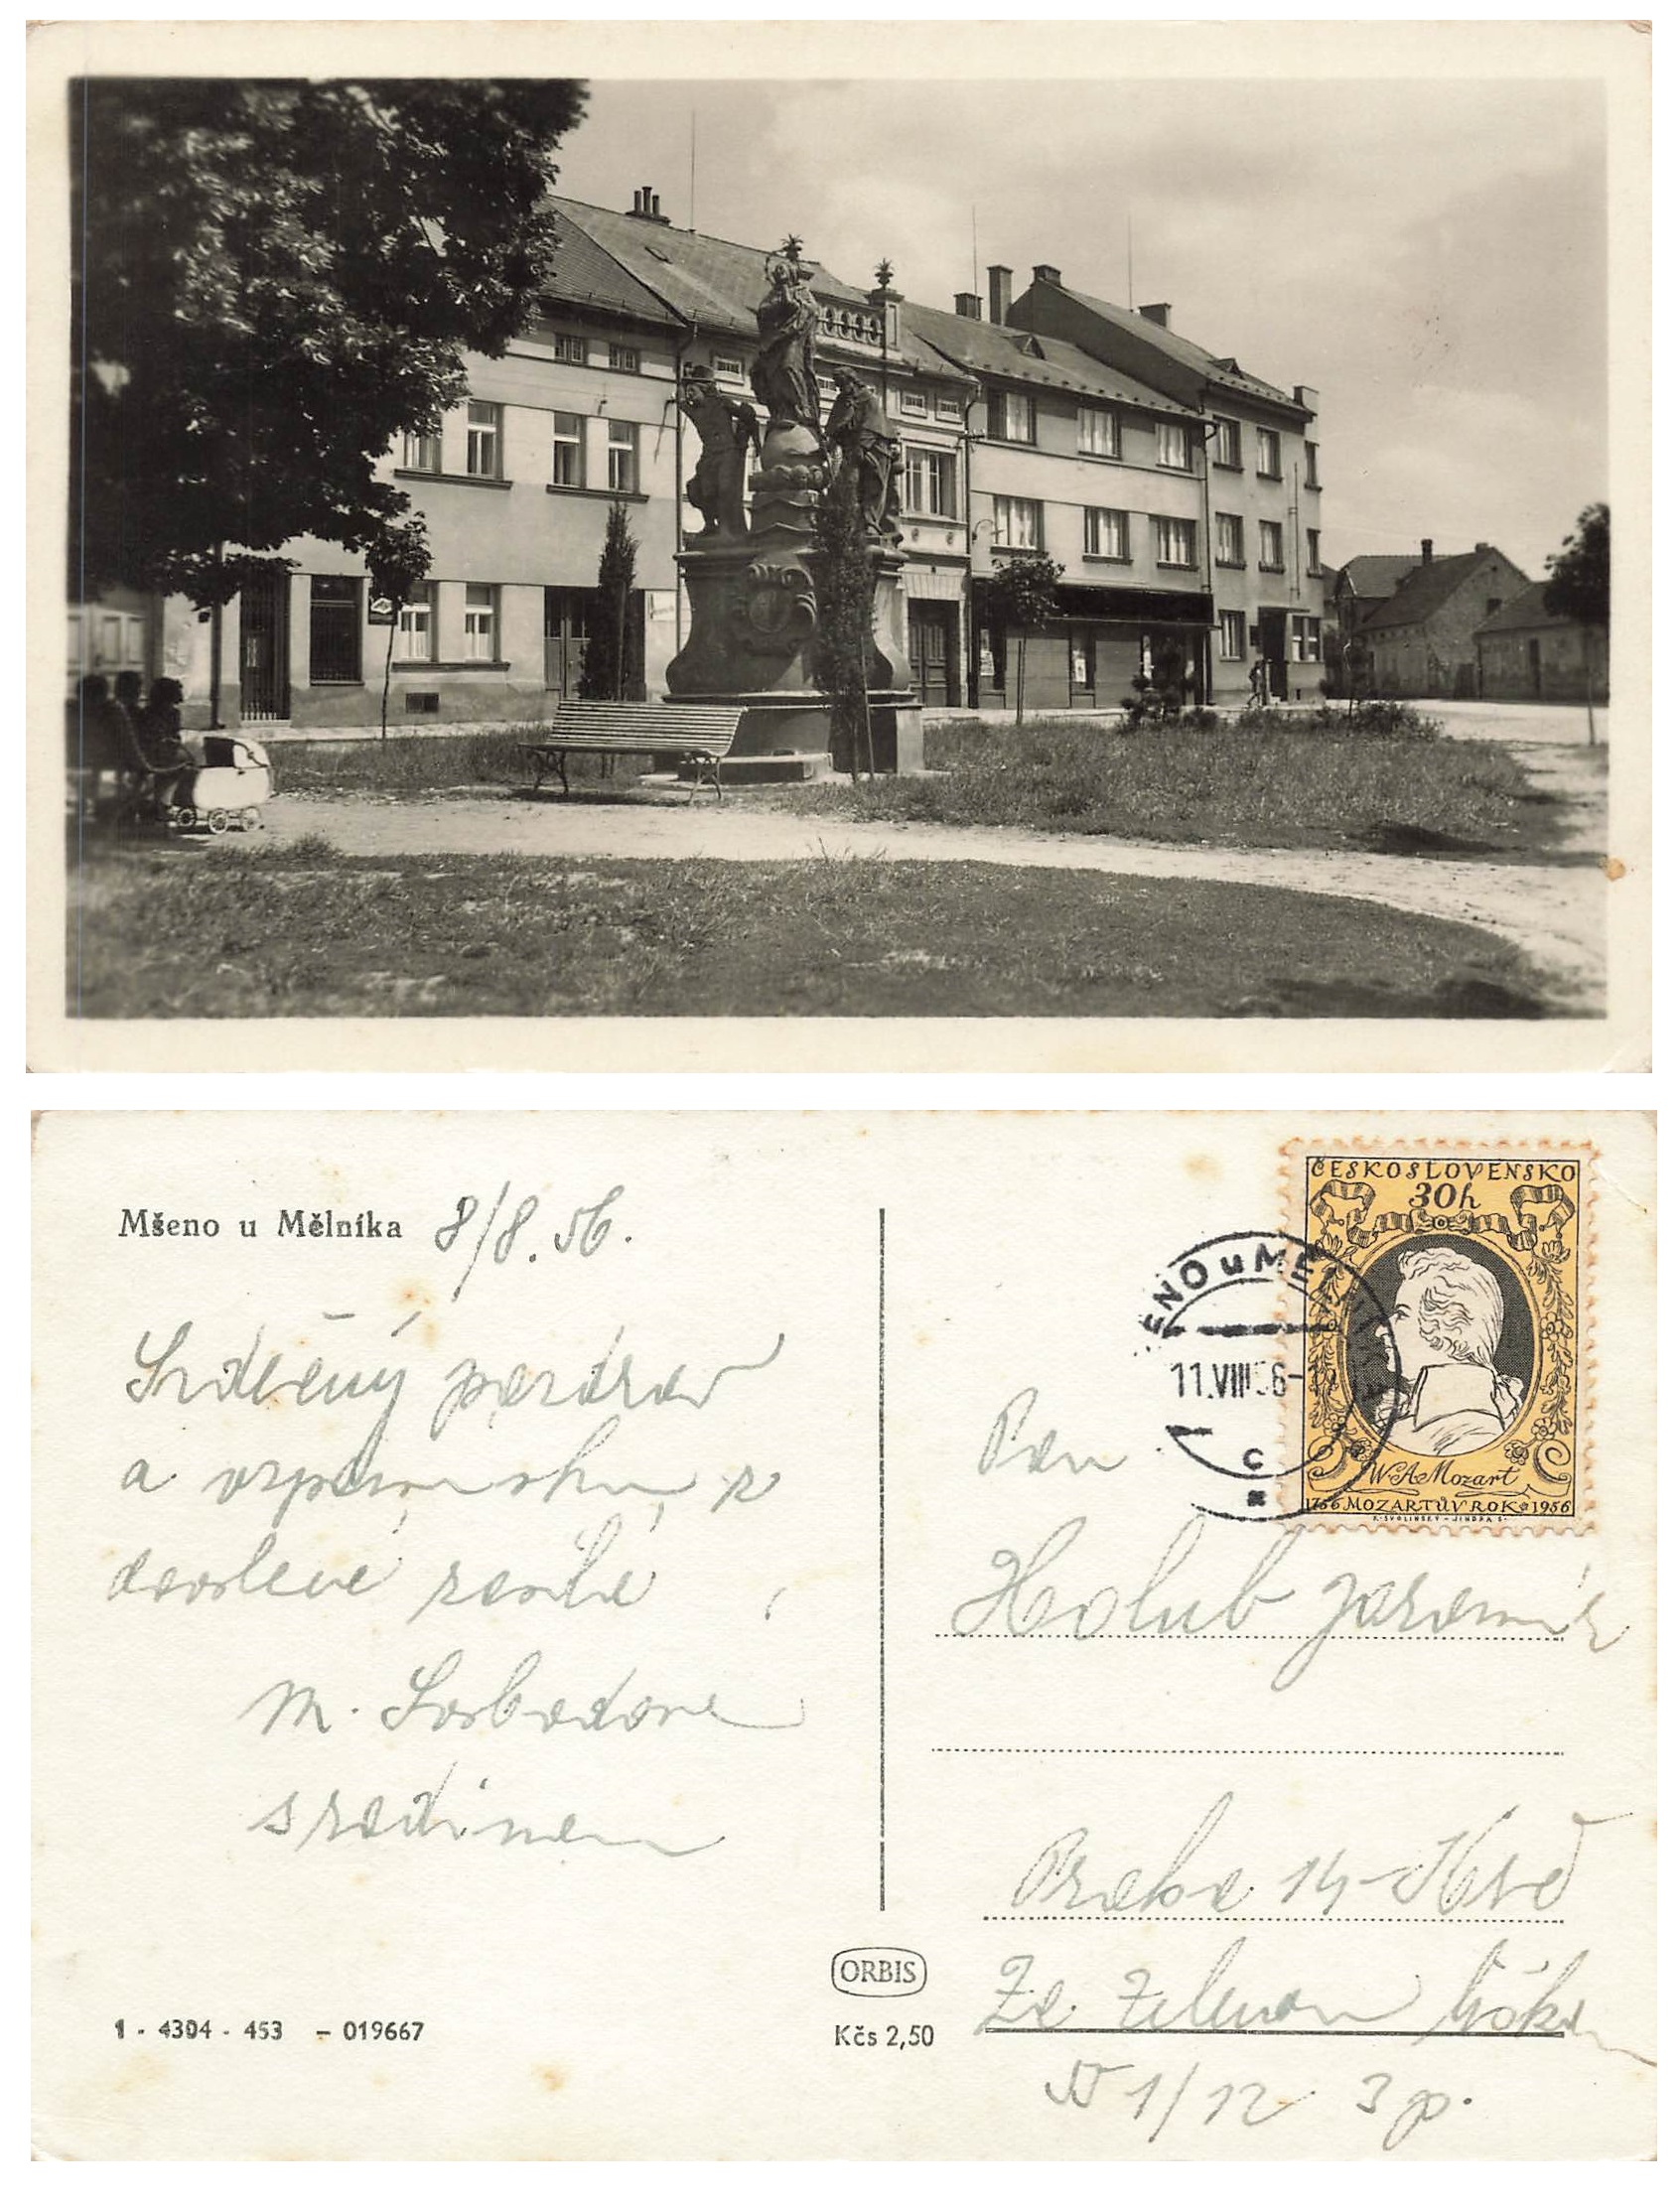 Mšeno u Mělníka 8/8. 56.
Srdečný pozdrav
a vzpomínku z
dovolené zasílá
M. Svobodová
s rodinou
1 - 4304 - 453 - 019667
ORBIS
Kčs 2,50
ČESKOSLOVENSKO
30h
W.A.Mozart
1756 MOZARTŮV ROK 1956
K. SVOLINSKÝ - JINDRA S.
ENO u MĚ
11.VIII 56-
C
Pan
Holub Jaromír
Praha 14-Krč
Za Zelenou liškou
1/12 3 p.